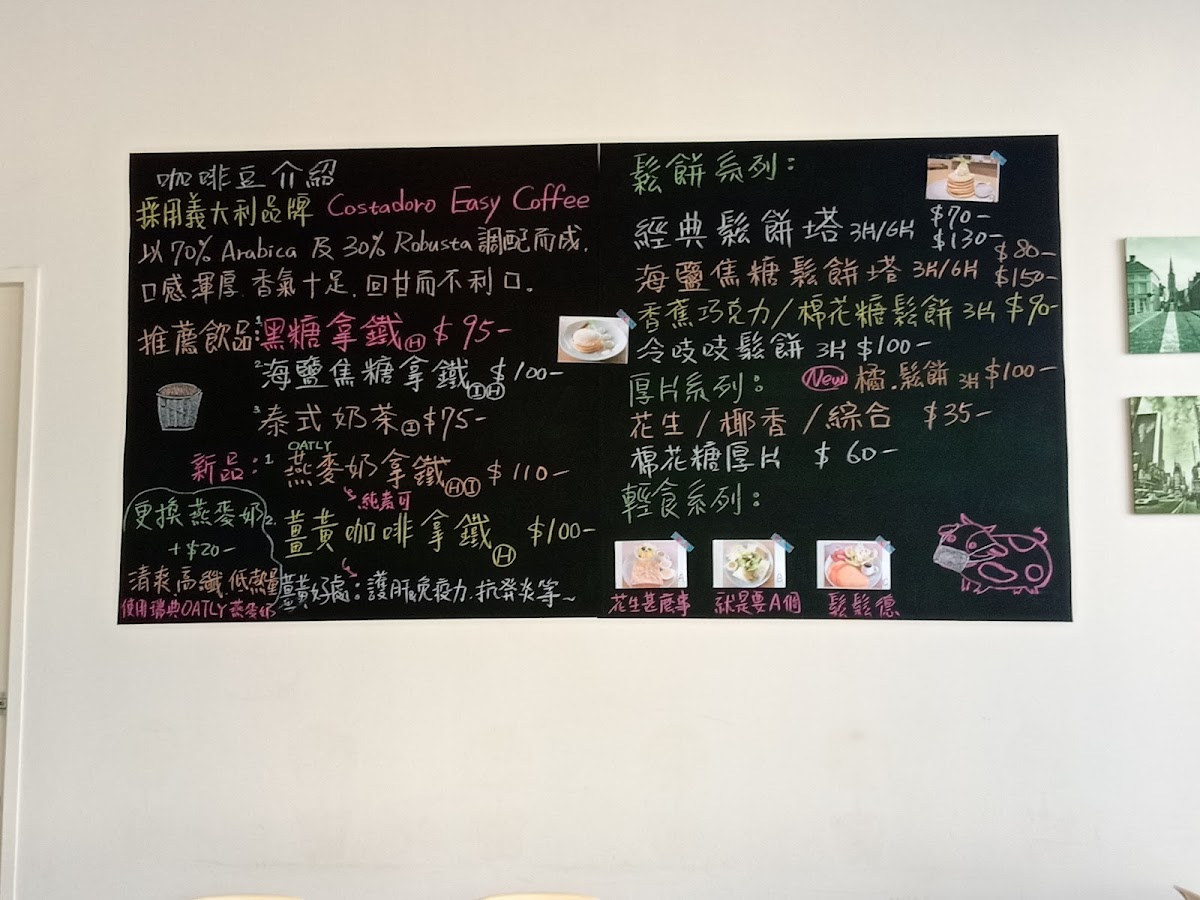 咖啡豆介紹
採用義大利品牌 Costadoro Easy Coffee
以 70% Arabica 及 30% Robusta 調配而成.
口感渾厚.香氣十足.回甘而不利口。
推薦飲品:1.黑糖拿鐵Ⓗ $95-
2.海鹽焦糖拿鐵ⒾⒽ $100-
3.泰式奶茶Ⓘ $75-
OATLY
新品:1.燕麥奶拿鐵ⒽⒾ $110-
純素可
2.薑黃咖啡拿鐵Ⓗ $100-
薑黃好處:護肝免疫力.抗發炎等~
更換燕麥奶
+$20-
清爽.高纖.低熱量
使用瑞典OATLY燕麥奶
鬆餅系列:
經典鬆餅塔 3H/6H $70- $130-
海鹽焦糖鬆餅塔 3H/6H $80- $150-
香蕉巧克力/棉花糖鬆餅 3H $90-
冷吱吱鬆餅 3H $100-
New 橘.鬆餅 3H $100-
厚片系列:
花生/椰香/綜合 $35-
棉花糖厚片 $60-
輕食系列:
A
B
C
花生甚麼事
就是要A個
鬆鬆德